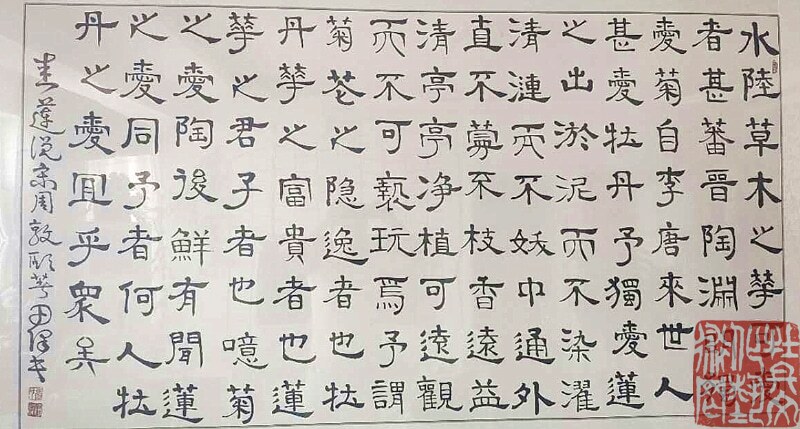 水陸草木之華
者甚蕃晉陶淵
愛菊自李唐來世人
甚愛牡丹予獨愛蓮
之出淤泥而不染濯
清漣而不妖中通外
直不蔓不枝香遠益
清亭亭净植可遠觀
而不可褻玩焉予謂
菊花之隐逸者也牡
丹華之富貴者也蓮
華之君子者也噫菊
之愛陶後鮮有聞蓮
之愛同予者何人牡
丹之愛宜乎眾矣
蓮说宋周敦頤